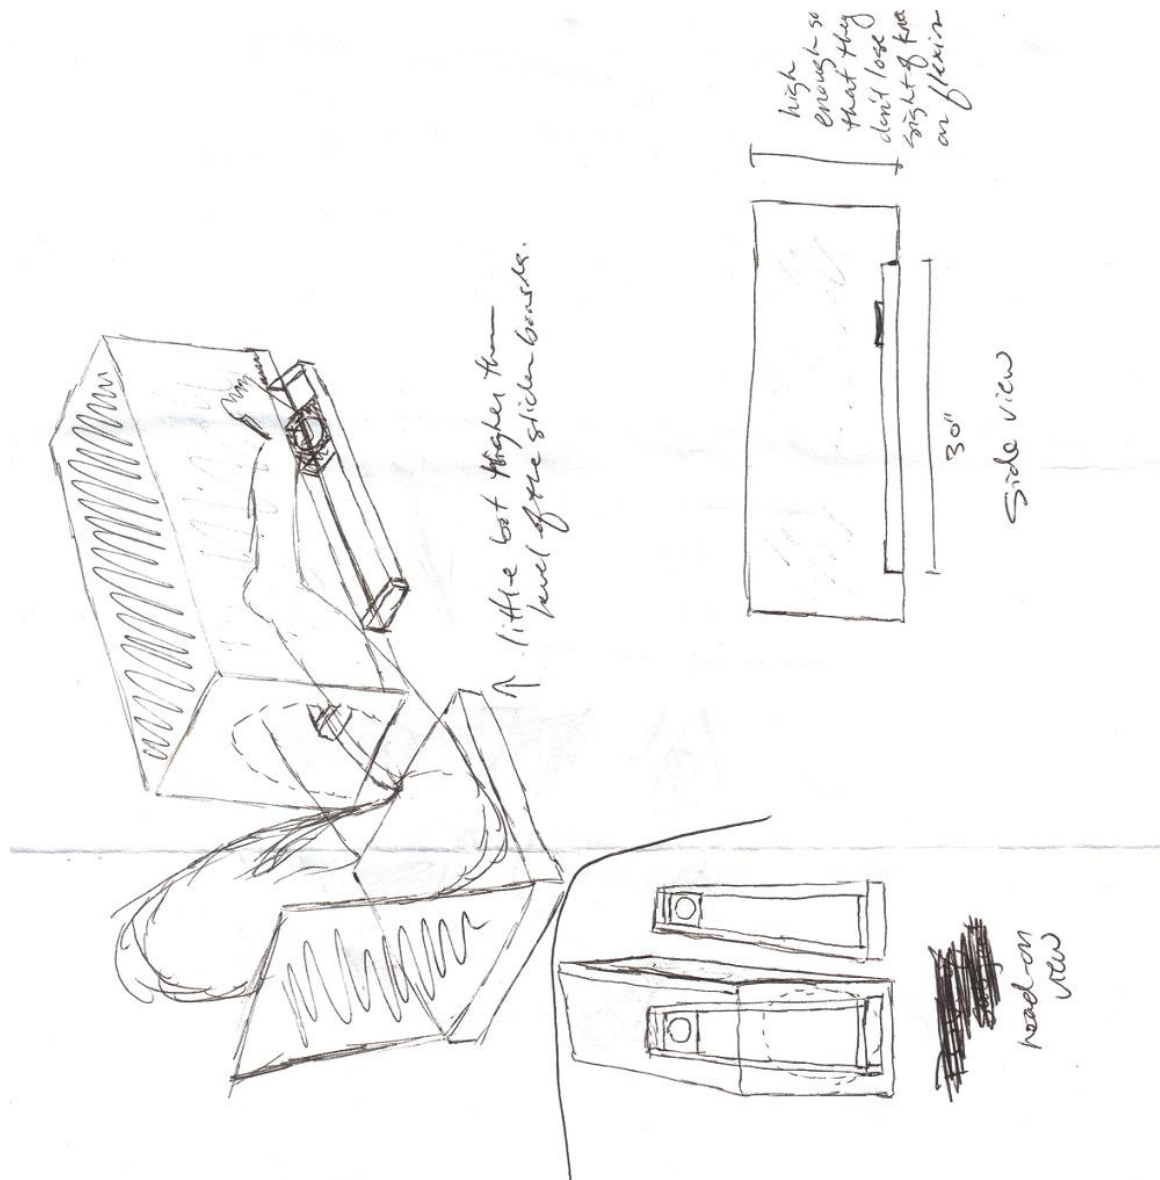 high
enough so
that they
don't lose
sight of knee
on flexion
↑ little bit higher than
level of the slider boards.
30"
Side view
head-on
view